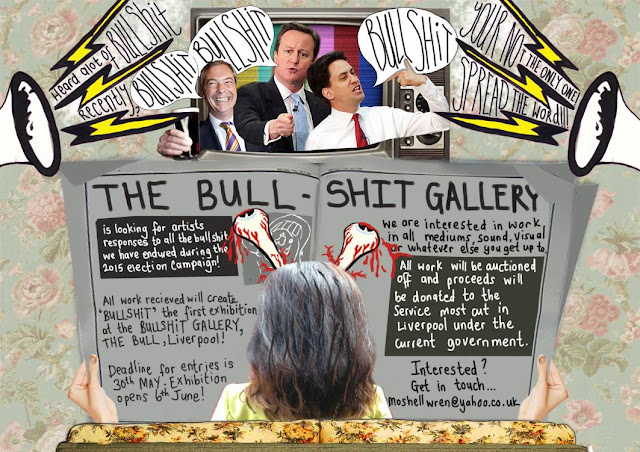 Heard alot of BULLSHiT
Recently,
BULLSHiT
BULLSHiT
BULLSHiT
YOUR NOT THE ONLY ONE!
SPREAD THE WORD!!!
THE BULL-SHIT GALLERY
is looking for artists
responses to all the bullshit
we have endured during the
2015 election campaign!
All work recieved will create
"BULLSHiT" the first exhibition
at the BULLSHiT GALLERY,
THE BULL, Liverpool!
Deadline for entries is
30th MAY. Exhibition
opens 6th June!
We are interested in work
in all mediums, sound, visual
or whatever else you get up to
All work will be auctioned
off and proceeds will
be donated to the
Service most cut in
Liverpool under the
current government.
Interested?
Get in touch...
moshellwren@yahoo.co.uk